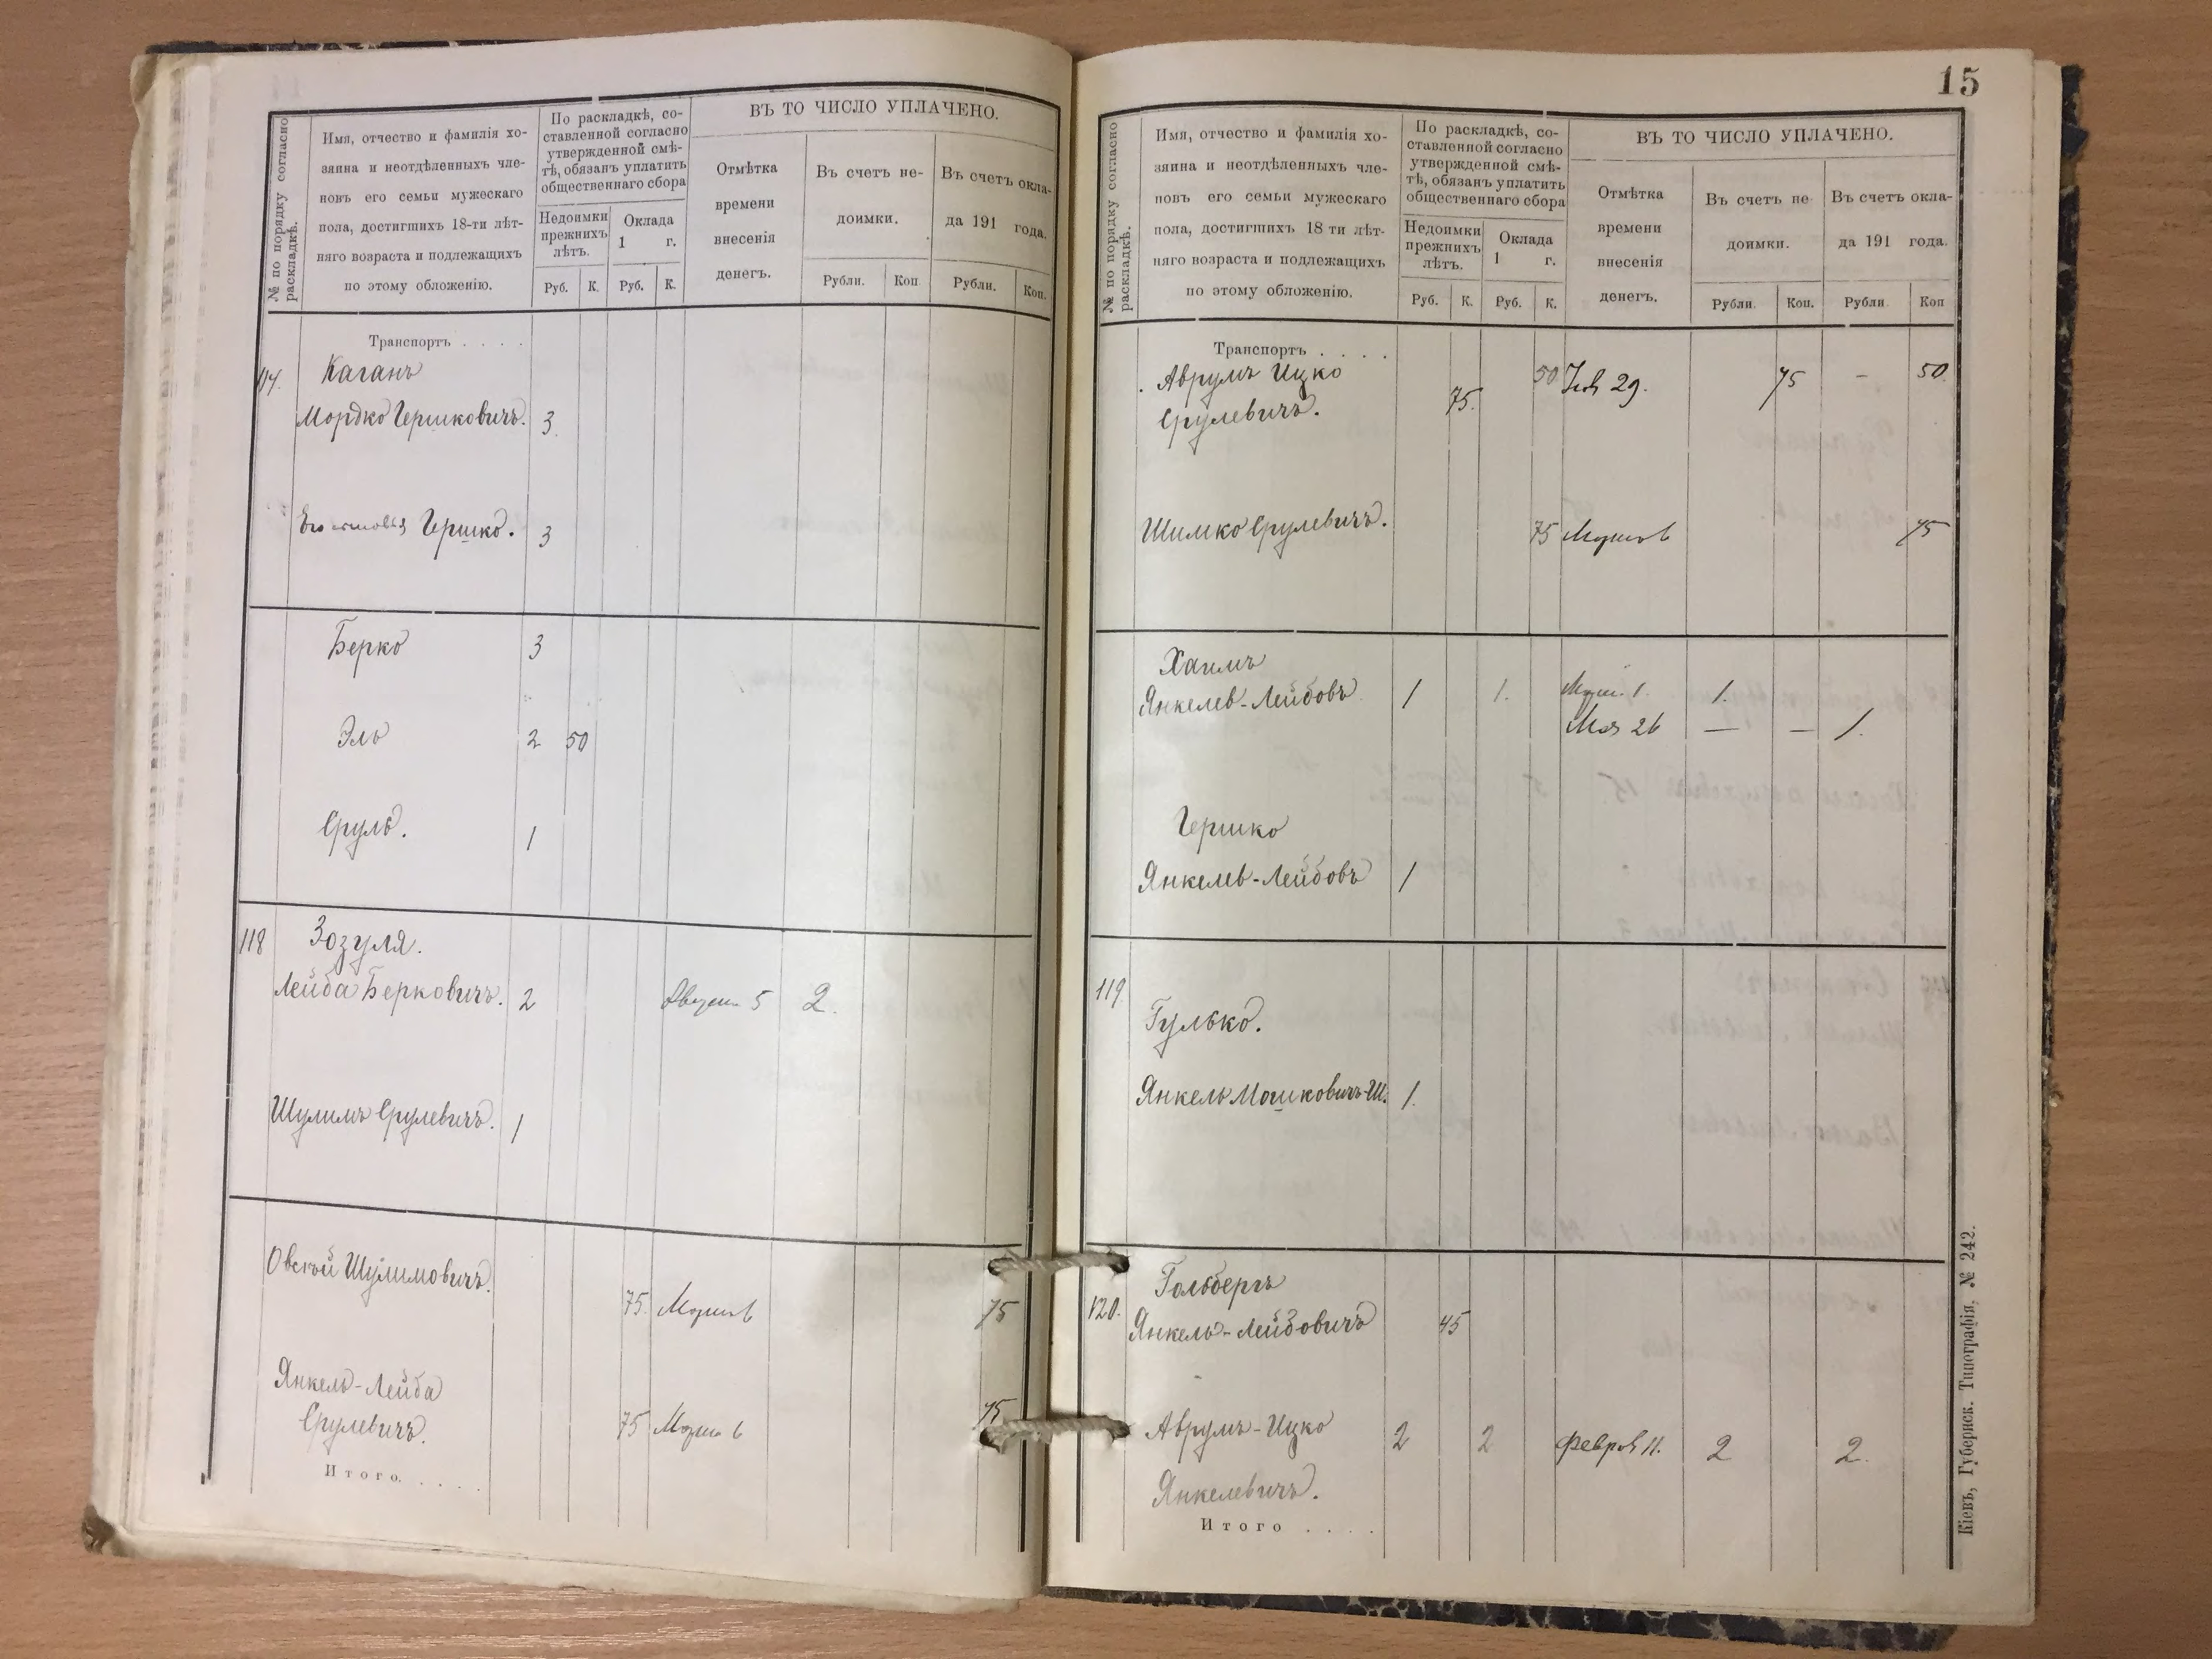 № по порядку согласно раскладкѣ.
Имя, отчество и фамилія хо-
зяина и неотдѣленныхъ чле-
новъ его семьи мужескаго
пола, достигшихъ 18-ти лѣт-
няго возраста и подлежащихъ
по этому обложенію.
По раскладкѣ, со-
ставленной согласно
утвержденной смѣ-
тѣ, обязанъ уплатить
общественнаго сбора
Недоимки
прежнихъ
лѣтъ.
Оклада
1 г.
Руб. К. Руб. К.
ВЪ ТО ЧИСЛО УПЛАЧЕНО.
Отмѣтка
времени
внесенія
денегъ.
Въ счетъ не-
доимки.
Рубли. Коп
Въ счетъ окла-
да 191 года.
Рубли. Коп.
Транспортъ . . . .
Каганъ
Мордко Гершковичъ. 3
Гершко. 3
Берко 3
Эль 2 50
Сруль. 1
118 Зозуля.
Лейба Берковичъ. 2 Август 5 2.
Шулимъ Срулевичъ. 1
Овсей Шулимовичъ.
75. 75
Янкель-Лейба
Срулевичъ. 75 75
Итого. . . . .
15
№ по порядку согласно раскладкѣ.
Имя, отчество и фамилія хо-
зяина и неотдѣленныхъ чле-
новъ его семьи мужескаго
пола, достигшихъ 18 ти лѣт-
няго возраста и подлежащихъ
по этому обложенію.
По раскладкѣ, со-
ставленной согласно
утвержденной смѣ-
тѣ, обязанъ уплатить
общественнаго сбора
Недоимки
прежнихъ
лѣтъ.
Оклада
1 г.
Руб. К. Руб. К.
ВЪ ТО ЧИСЛО УПЛАЧЕНО.
Отмѣтка
времени
внесенія
денегъ.
Въ счетъ не
доимки.
Рубли Коп.
Въ счетъ окла-
да 191 года.
Рубли. Коп
Транспортъ . . . .
Аврумъ Ицко 50 29. 75 — 50
Срулевичъ. 75.
Шимко Срулевичъ. 75 75
Хаимъ
Янкелев-Лейбовъ 1 1. 1. 1.
Мая 26 — — 1.
Гершко
Янкелев-Лейбовъ 1
119
Гулько.
Янкель Мошковичъ-Ш. 1.
Гольбергъ
120. Янкель-Лейбовичъ 45
Аврумъ-Ицко 2 2 Феврал 11. 2 2.
Янкелевичъ.
Итого . . . .
Кіевъ, Губернск. Типографія, № 242.